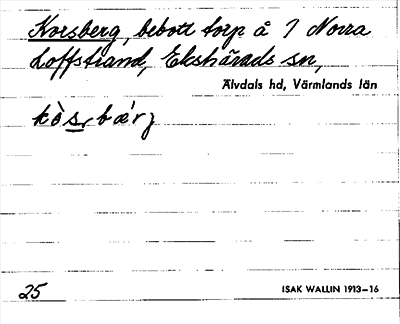 Korsberg, bebott torp å 7 Norra
Loffstrand, Ekshärads sn,
Älvdals hd, Värmlands län
kòs̲, bǽrj
25
ISAK WALLIN 1913–16